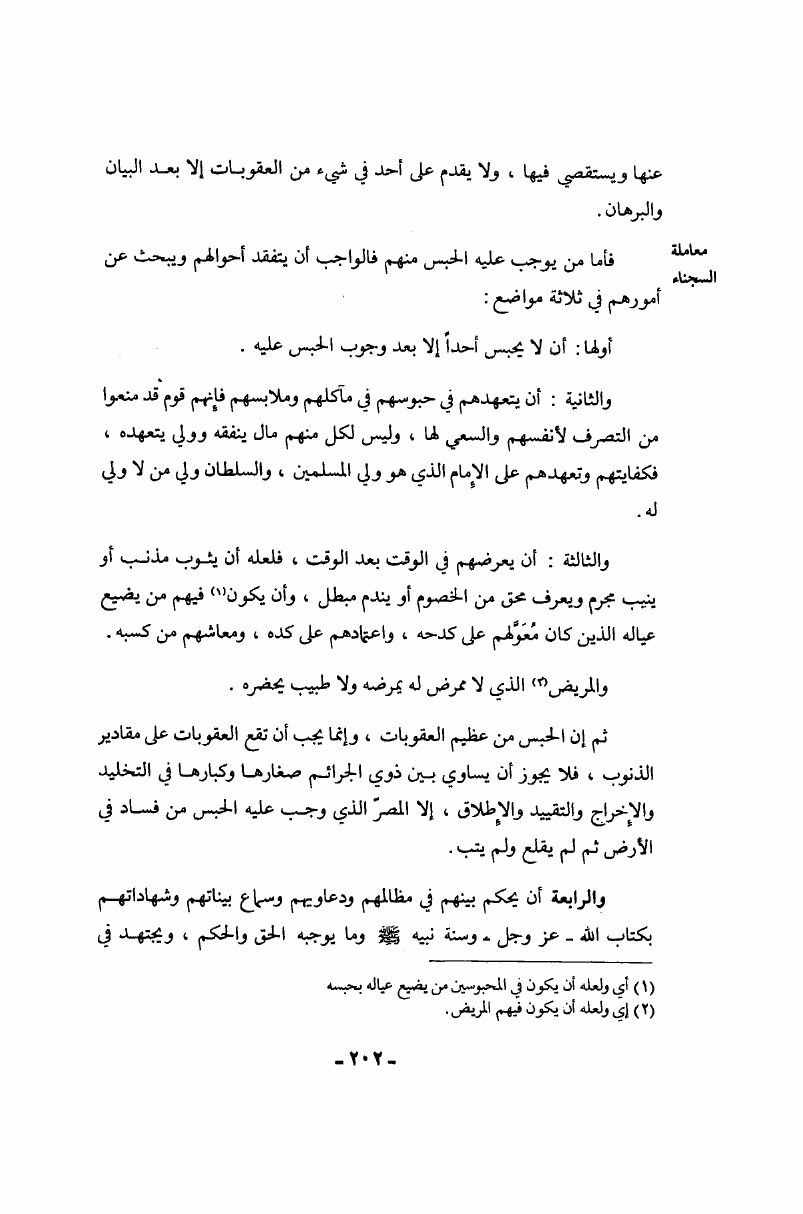 عنها ويستقصي فيها ، ولا يقدم على أحد في شيء من العقوبات إلا بعد البيان
والبرهان .
معاملة
السجناء
فأما من يوجب عليه الحبس منهم فالواجب أن يتفقد أحوالهم ويبحث عن
أمورهم في ثلاثة مواضع :
أولها : أن لا يحبس أحداً إلا بعد وجوب الحبس عليه .
والثانية : أن يتعهدهم في حبوسهم في مآكلهم وملابسهم فإنهم قوم قد منعوا
من التصرف لأنفسهم والسعي لها ، وليس لكل منهم مال ينفقه وولي يتعهده ،
فكفايتهم وتعهدهم على الإمام الذي هو ولي المسلمين ، والسلطان ولي من لا ولي
له .
والثالثة : أن يعرضهم في الوقت بعد الوقت ، فلعله أن يثوب مذنب أو
ينيب مجرم ويعرف محق من الخصوم أو يندم مبطل ، وأن يكون(١) فيهم من يضيع
عياله الذين كان مُعَوَّلهم على كدحه ، واعتمادهم على كده ، ومعاشهم من كسبه .
والمريض(٢) الذي لا ممرض له يمرضه ولا طبيب يحضره .
ثم إن الحبس من عظيم العقوبات ، وإنما يجب أن تقع العقوبات على مقادير
الذنوب ، فلا يجوز أن يساوي بين ذوي الجرائم صغارها وكبارها في التخليد
والإخراج والتقييد والإطلاق ، إلا المصرّ الذي وجب عليه الحبس من فساد في
الأرض ثم لم يقلع ولم يتب .
والرابعة أن يحكم بينهم في مظالمهم ودعاويهم وسماع بيناتهم وشهاداتهم
بكتاب الله ـ عز وجل ـ وسنة نبيه ﷺ وما يوجبه الحق والحكم ، ويجتهد في
(١) أي ولعله أن يكون في المحبوسين من يضيع عياله بحبسه
(٢) إي ولعله أن يكون فيهم المريض .
ـ ٢٠٢ ـ